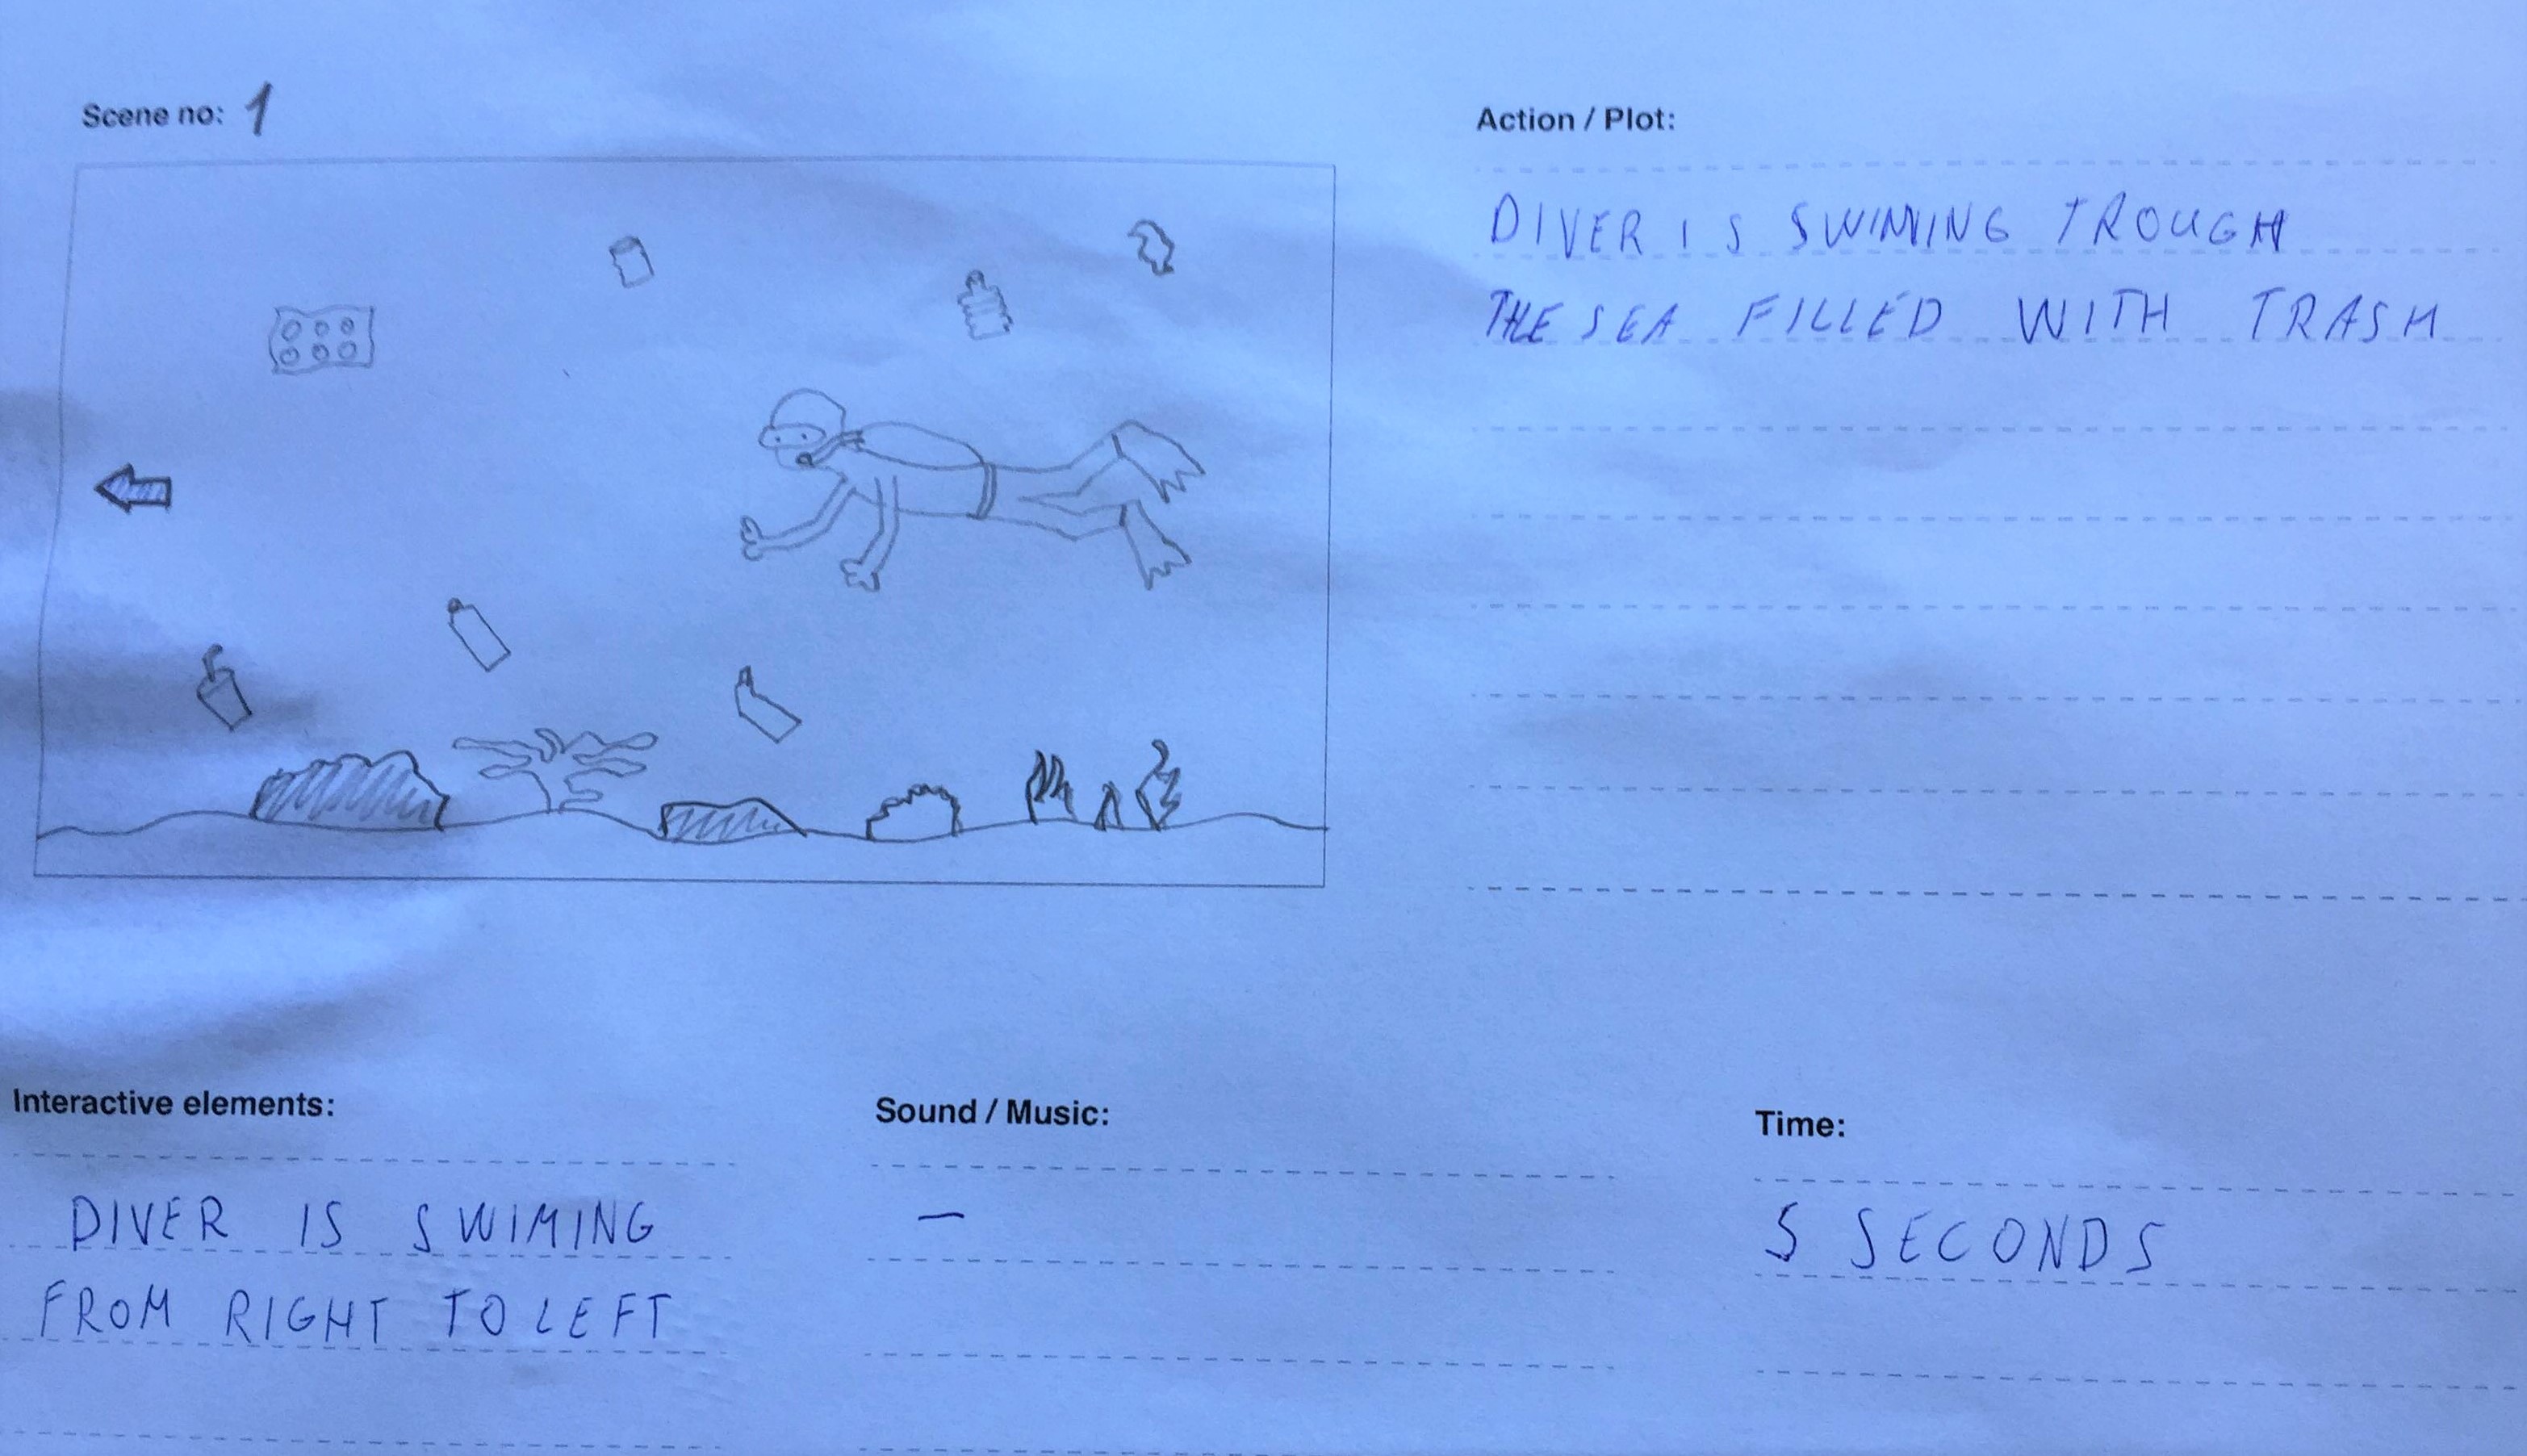 Scene no: 1
Action / Plot:
DIVER IS SWIMING TROUGH
THE SEA FILLED WITH TRASH
Interactive elements:
DIVER IS SWIMING
FROM RIGHT TO LEFT
Sound / Music:
—
Time:
5 SECONDS